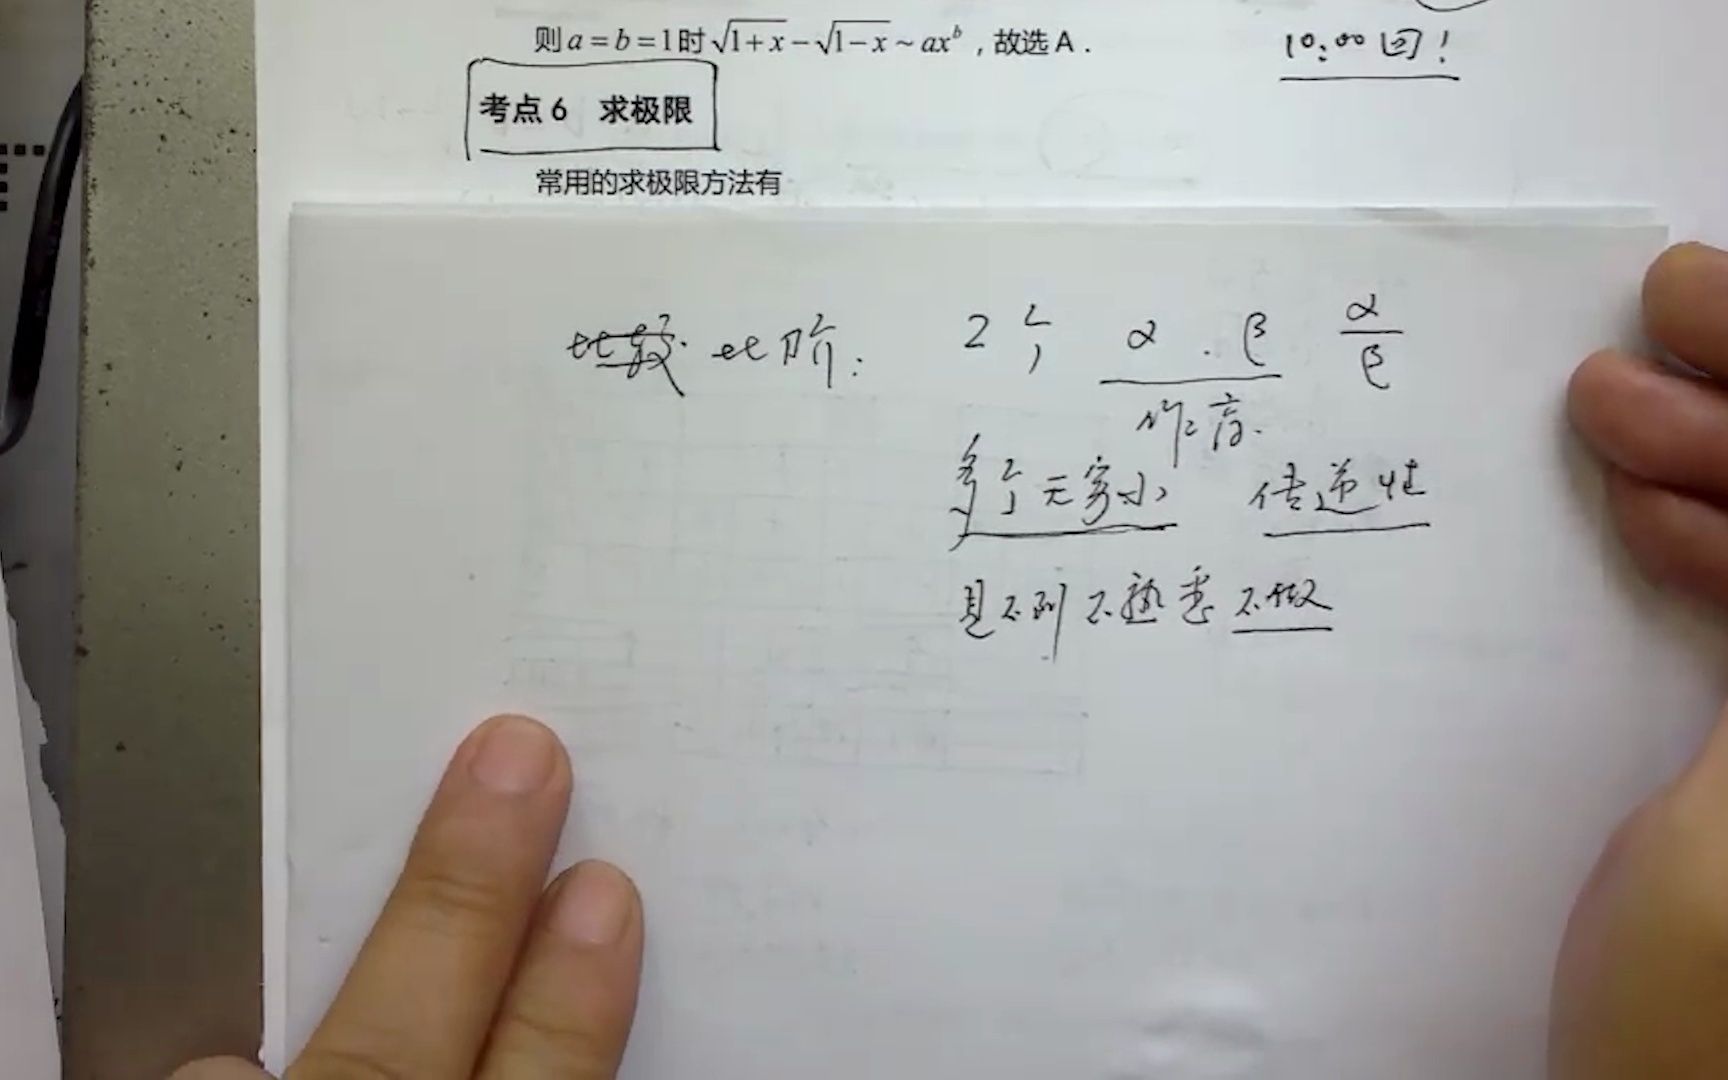 则 a = b = 1 时 √1+x − √1−x ~ ax^b ，故选 A．
10:00 回！
考点 6 求极限
常用的求极限方法有
比较 比阶： 2个 α . β α/β
作商.
多个无穷小 传递性
且不到不熟悉不做